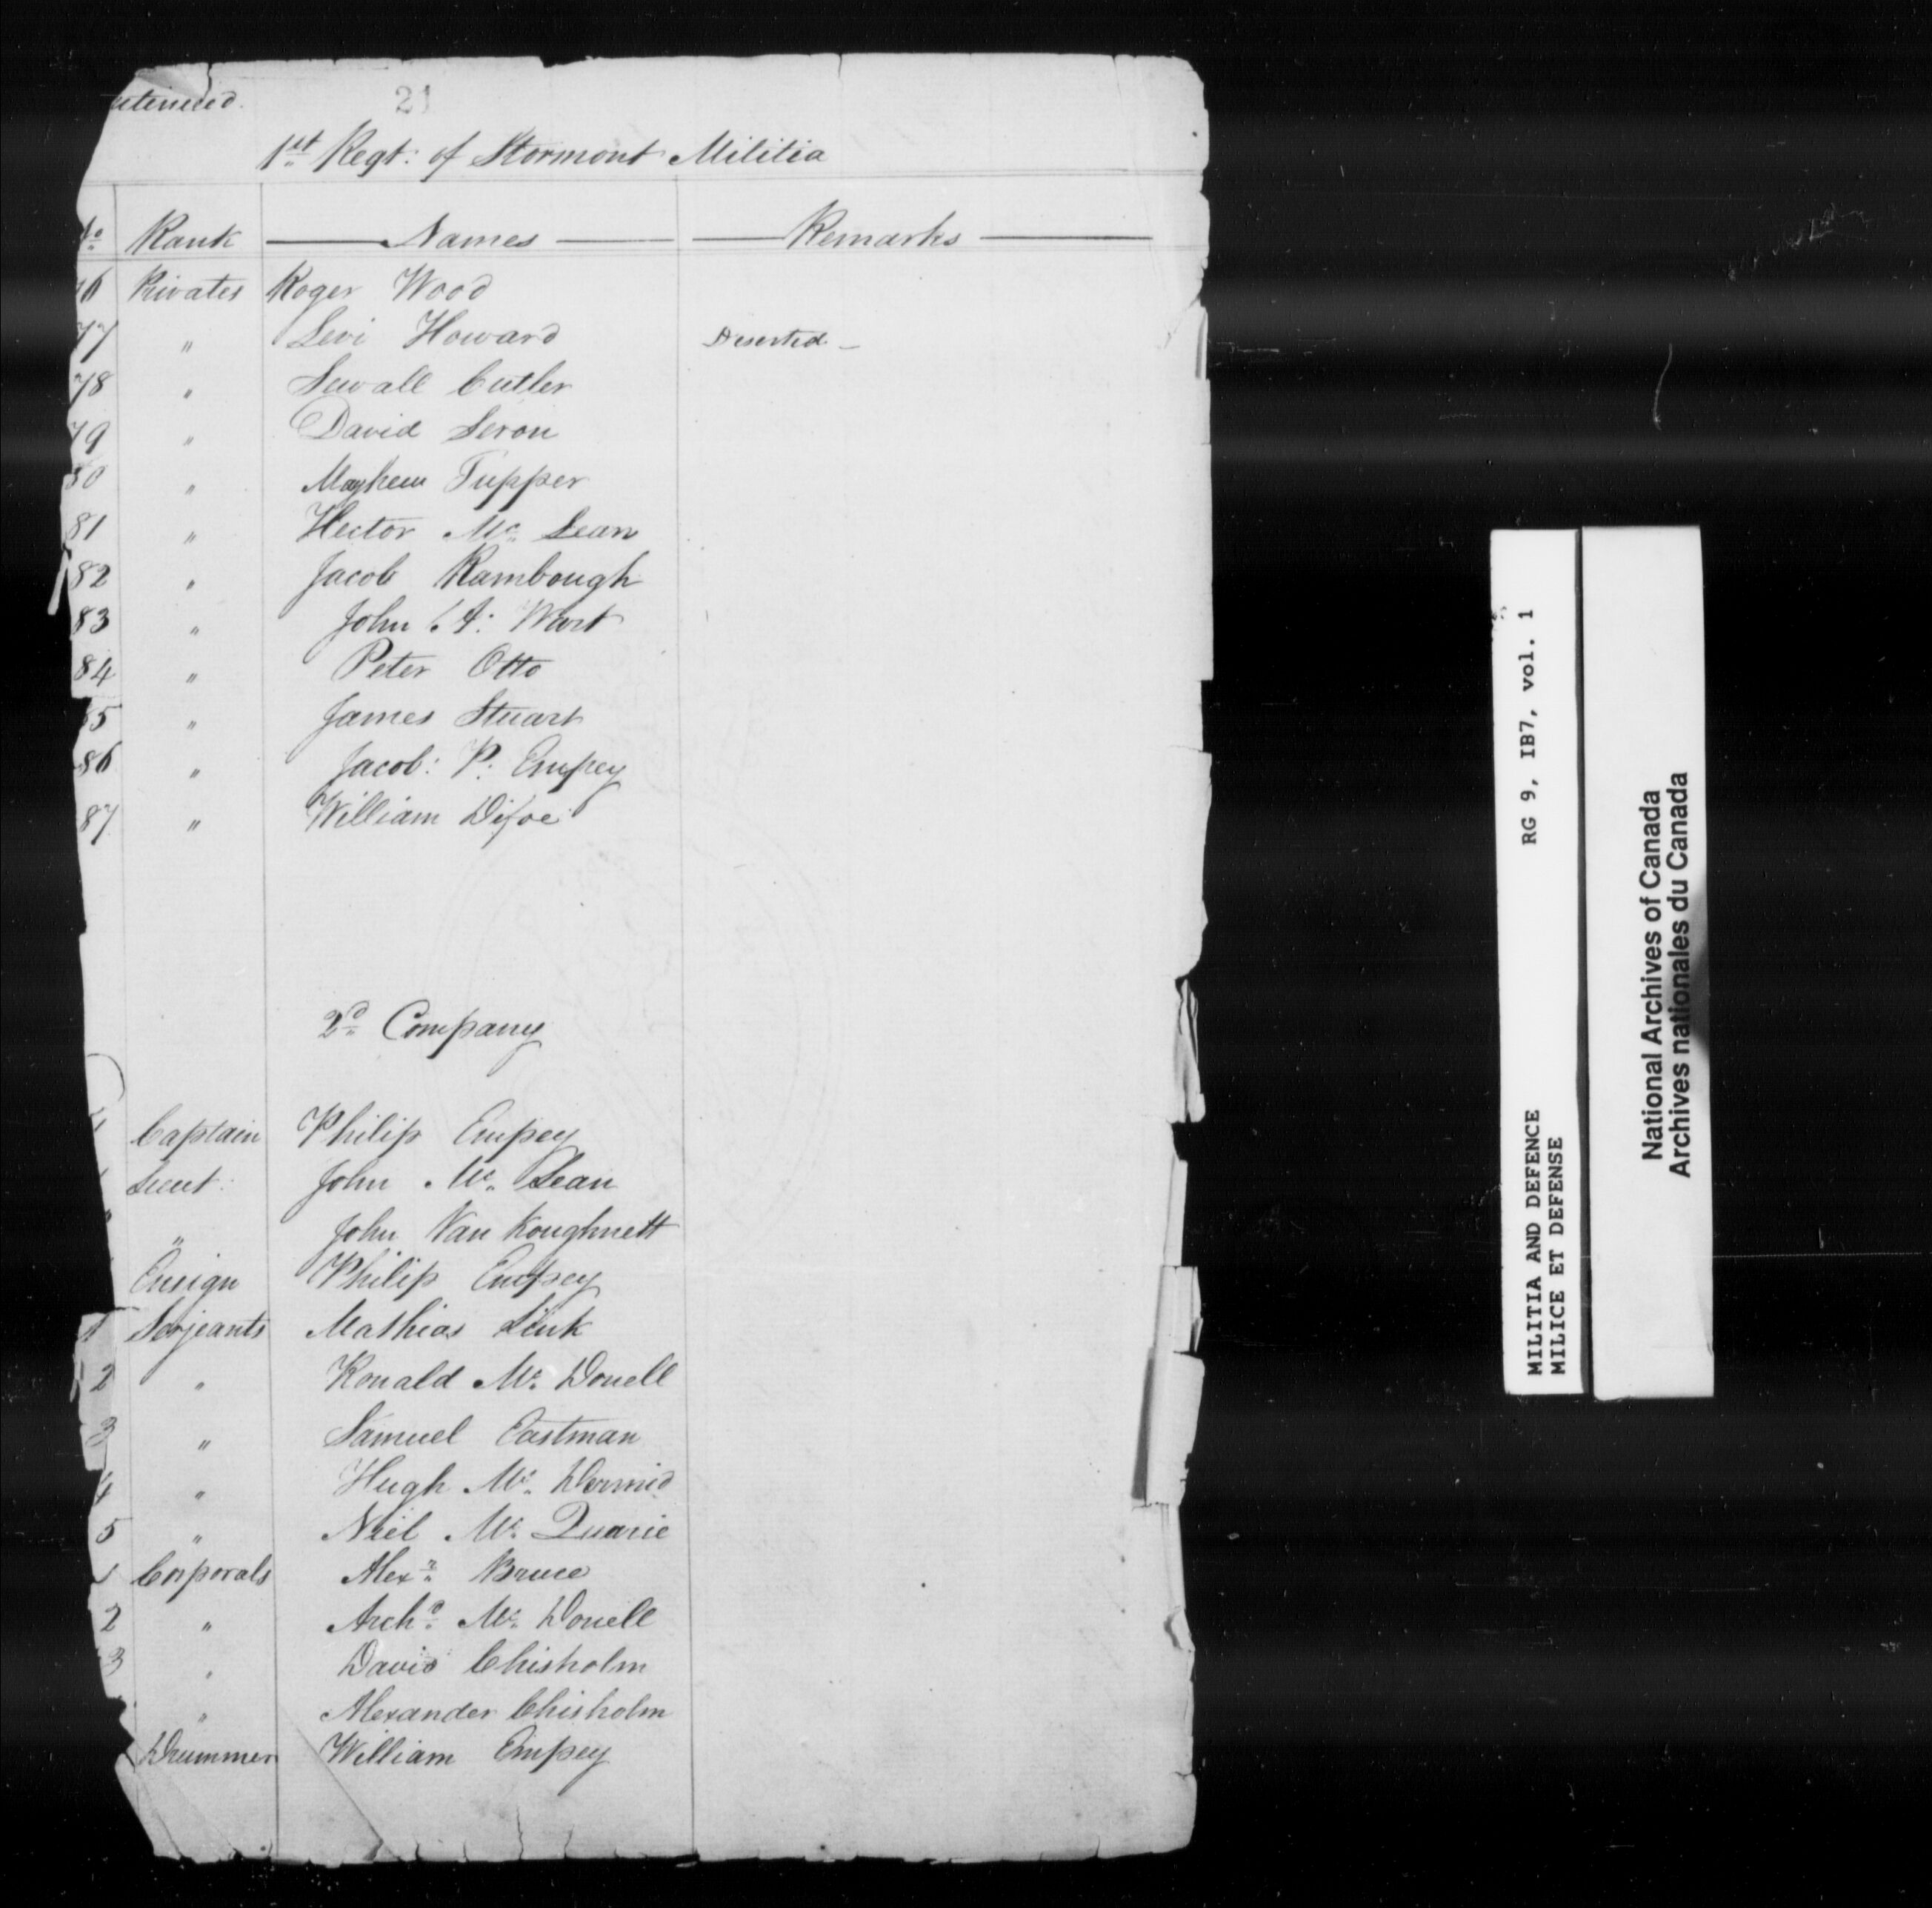 ntinued.
21
1st Regt: of Stormont Militia
No Rank Names Remarks
76 Privates Roger Wood
77 " Levi Howard Deserted
78 " Sewall Cutler
79 " David Seron
80 " Mayhew Tupper
81 " Hector Mc Lean
82 " Jacob Rambough
83 " John A: Wart
84 " Peter Otto
85 " James Stuart
86 " Jacob: P: Empey
87 " William Difoe
2d Company
1 Captain Philip Empey
Lieut: John Mc Lean
" John Van Koughnett
Ensign Philip Empey
1 Serjeants Mathias Link
2 " Ronald Mc Donell
3 " Samuel Eastman
4 " Hugh Mc Dermid
5 " Niel Mc Quarie
1 Corporals Alexr Bruce
2 " Archd Mc Donell
3 " David Chisholm
" Alexander Chisholm
Drummer William Empey
MILITIA AND DEFENCE RG 9, IB7, vol. 1
MILICE ET DEFENSE
National Archives of Canada
Archives nationales du Canada